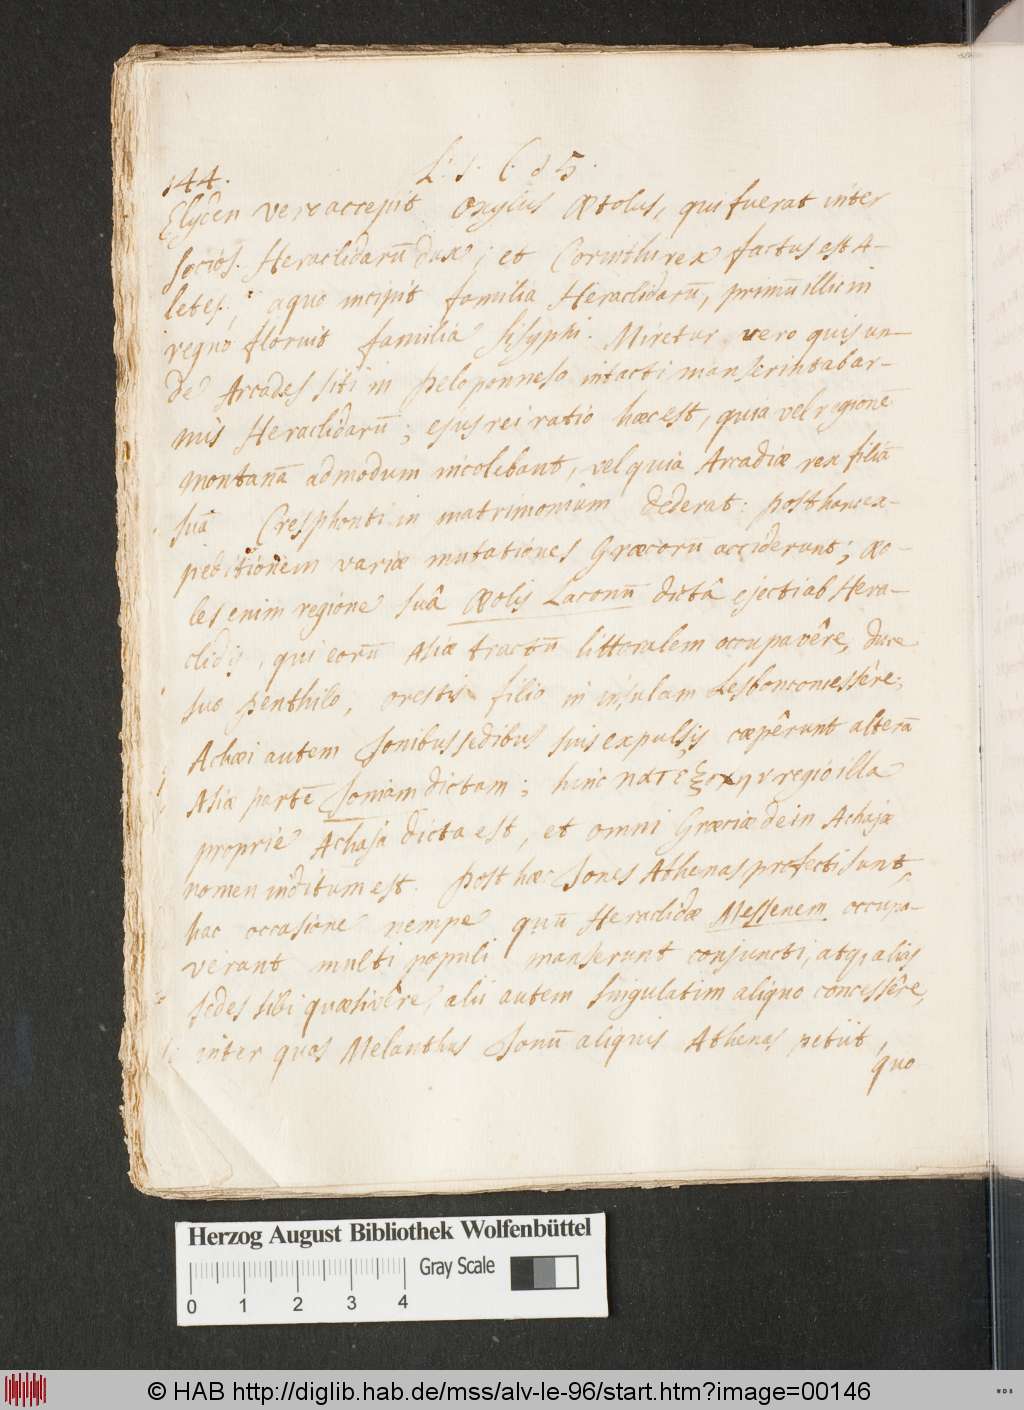 144. L. 1. C. d 5.
Elyden vero accepit Oxylus Ætolus, qui fuerat inter
socios. Heraclidarū dux; et Corinthi rex factus est A-
letes, a quo incipit familia Heraclidarū, primū illic in
regno floruit familia Sisyphi. Miretur vero quis un-
de Arcades siti in Peloponneso intacti manserint ab ar-
mis Heraclidarū; ejus rei ratio hæc est, quia vel regionē
montanā admodum incolebant, vel quia Arcadiæ rex filiā
suā Cresphonti in matrimonium dederat: post hanc ex-
peditionem variæ mutationes Græcorū acciderunt; Æo-
les enim regione suâ Æolis Laconū dictâ ejecti ab Hera-
clidis, qui eorū Asiæ tractū littoralem occupavêre, duce
suo Penthilo, Orestis filio in insulam Lesbon concessêre;
Achæi autem Ionibus sedibus suis expulsis cæpêrunt alterā
Asiæ partē Ioniam dictam; hinc κατεξοχην regio illa
proprie Achaja dicta est, et omni Græciæ dein Achajæ
nomen inditum est. Post hæc Iones Athenas profecti sunt,
hac occasione nempe quū Heraclidæ Messenem occupa-
verant multi populi manserunt conjuncti, atq, alias
sedes sibi quæsivêre, alii autem singulatim aliquo concessêre,
inter quos Melanthus Ionū aliquis Athenas petiit,
quo
Herzog August Bibliothek Wolfenbüttel
Gray Scale
0 1 2 3 4
© HAB http://diglib.hab.de/mss/alv-le-96/start.htm?image=00146